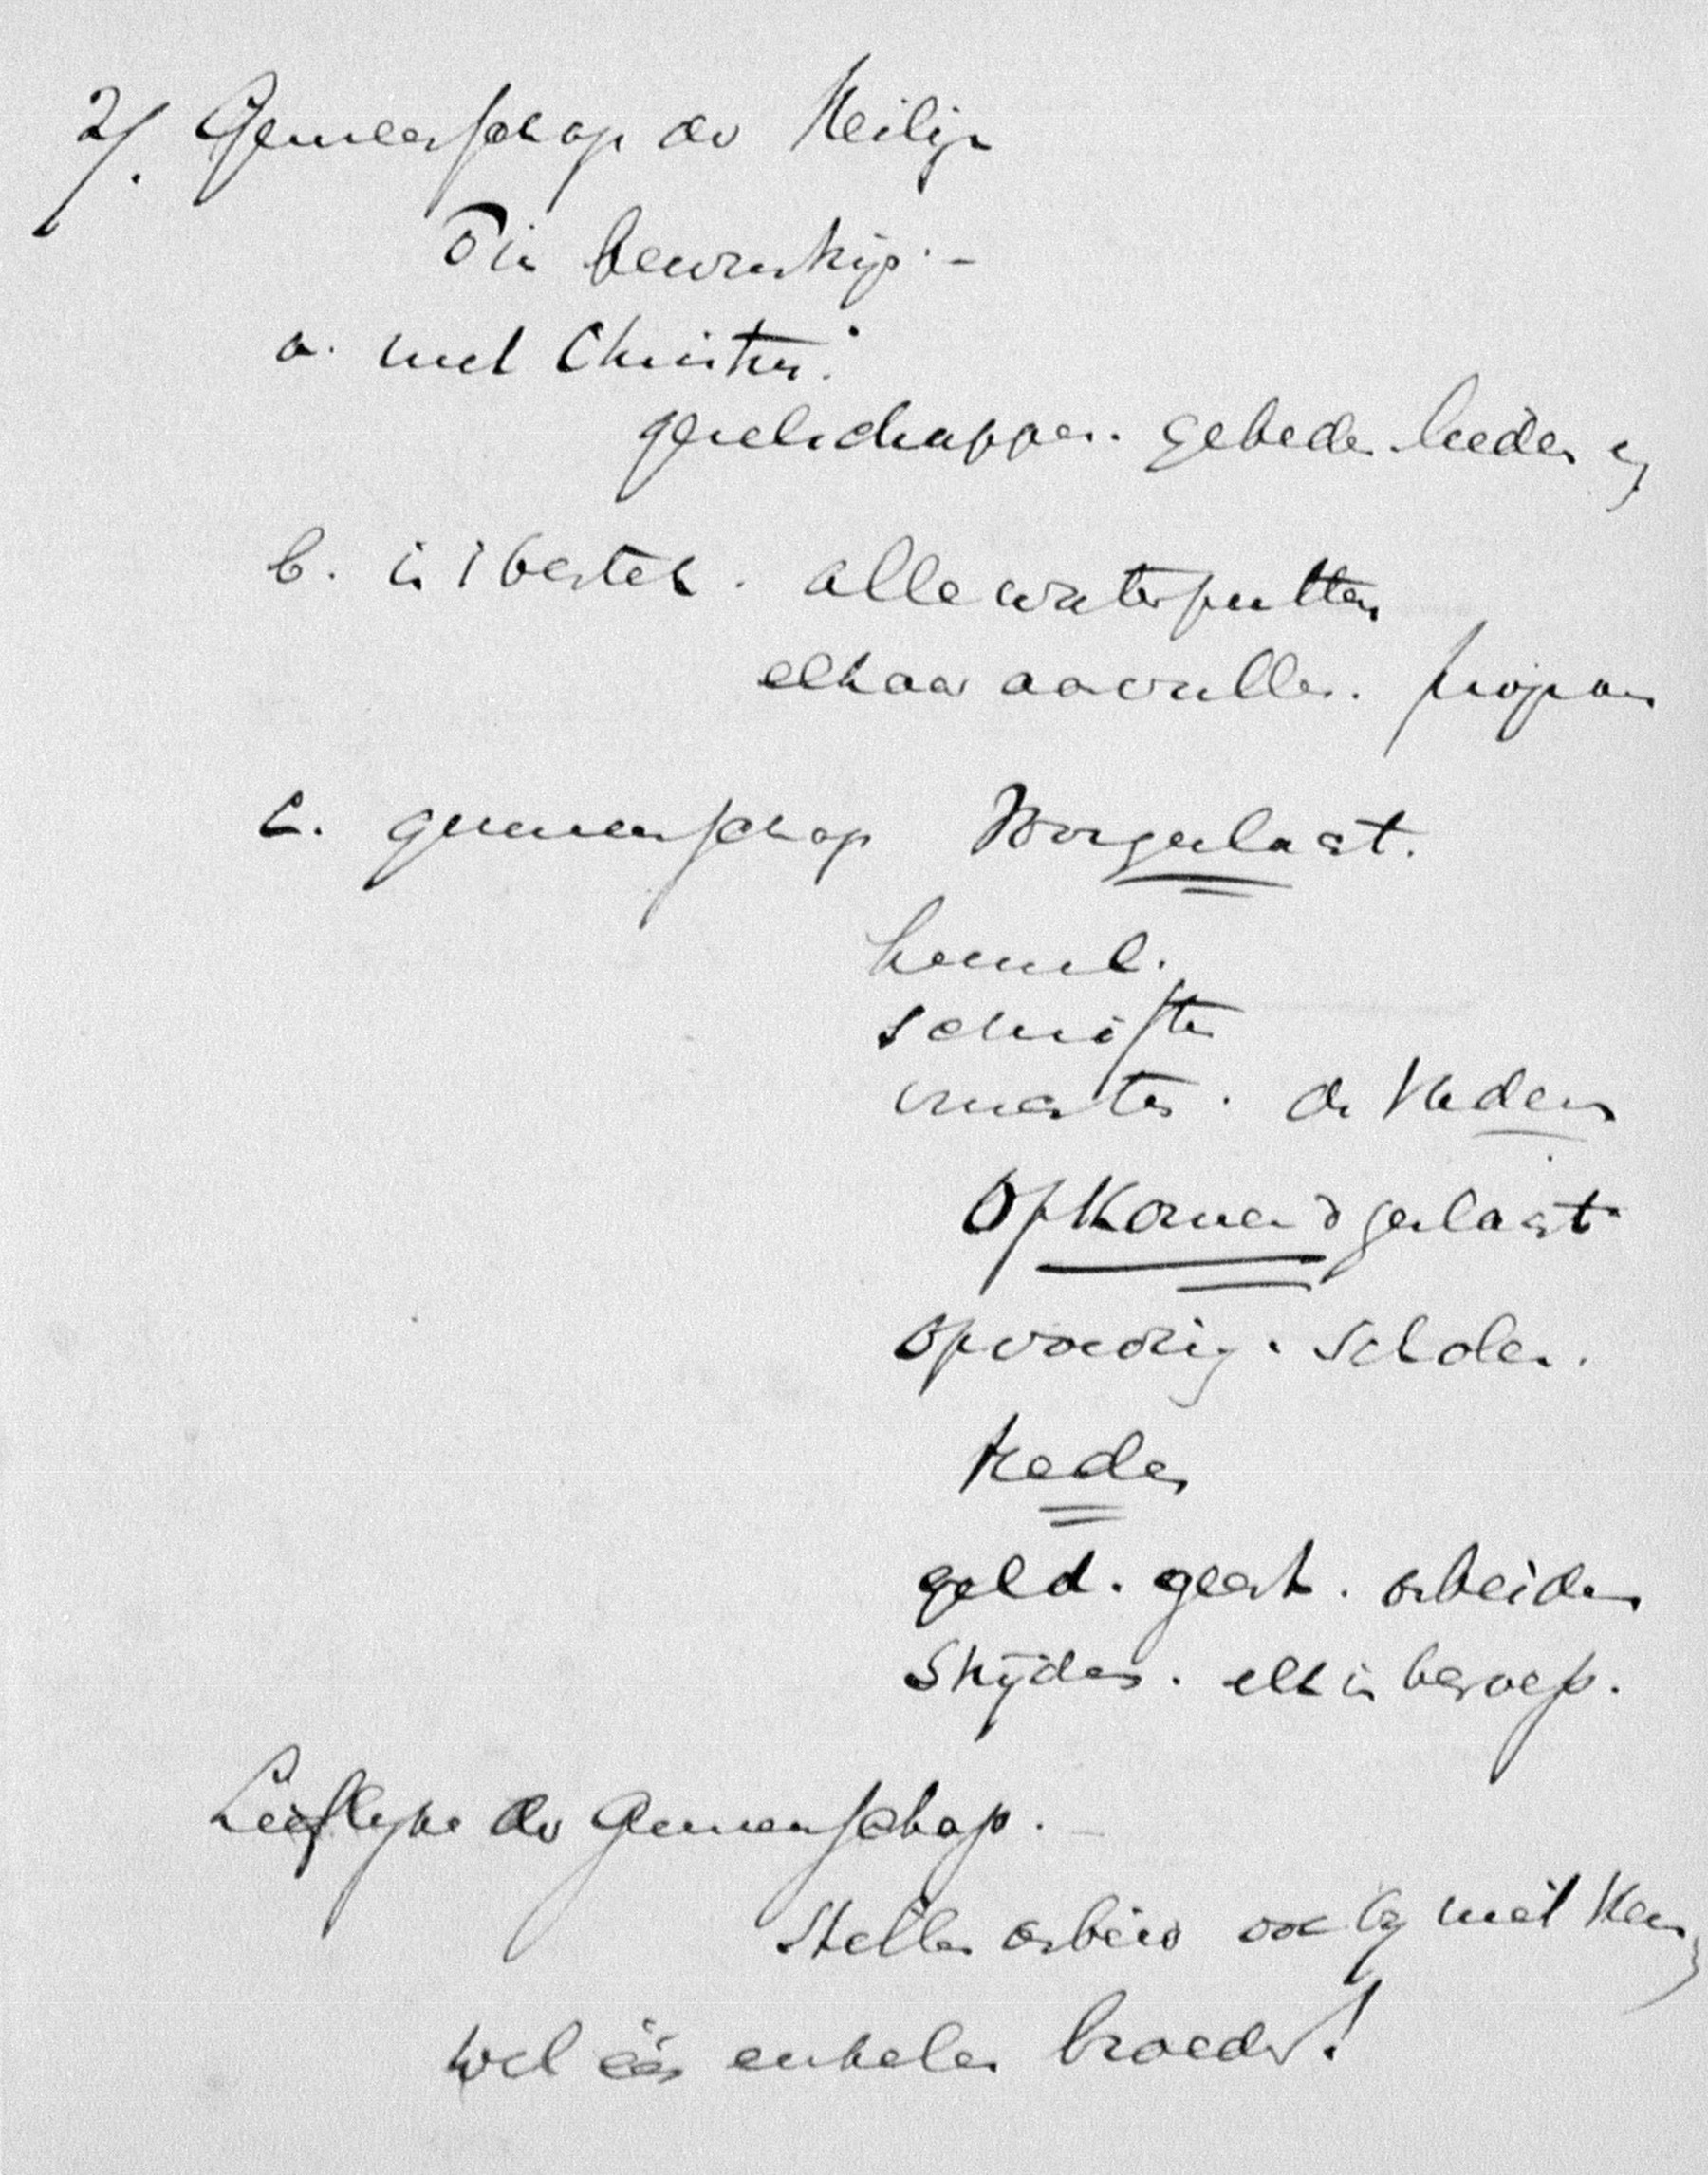 2/. Gemeenschap der Heilige
in bewustzijn. -
a. met Christus:
gezelschappen. gebeden leeden
b. in 't bestek. alle waterputten
elkaar aanvullen.
c. gemeenschap Voorgeslacht.
heml.
schriften
vruchten. de Vaders
Opkomend geslacht
opvoeding. Scholen.
Heden
geld. geest. arbeiden
Strijden. elk in beroep.
Lieflijke der Gemeenschap.
Stelle arbeid ook met
wel één enkelen broeder!